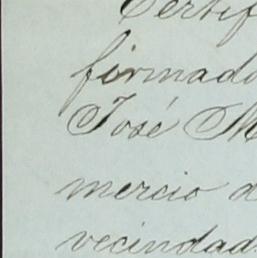 Certif
firmado
José M
mercio d
vecindad